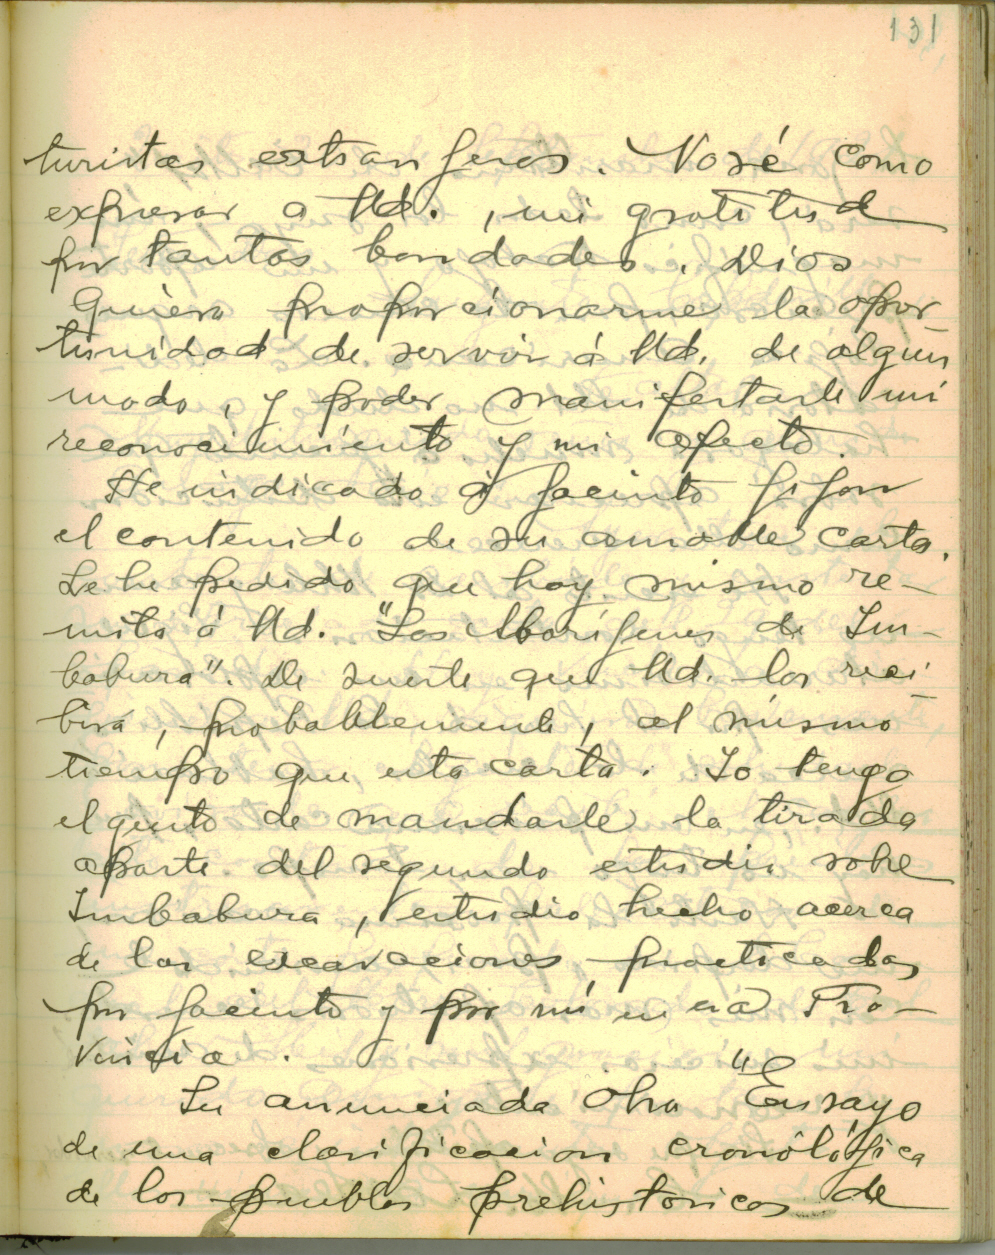 131
turistas extranjeros. No sé como
expresar a Ud., mi gratitud
por tantas bondades. Dios
quiera proporcionarme la opor
tunidad de servir á Ud. de algún
modo, y poder manifestarle mi
reconocimiento y mi afecto.
He indicado á Jacinto Jijon
el contenido de su amable carta.
Le he pedido que hoy mismo re-
mita á Ud. "Los Aborígenes de Im-
babura". De suerte que Ud. los reci-
birá, probablemente, al mismo
tiempo que esta carta. Yo tengo
el gusto de mandarle la tirada
aparte del segundo estudio sobre
Imbabura, estudio hecho acerca
de las excavaciones practicadas
por Jacinto y por mí en esa Pro-
vincia.
Su anunciada obra "Ensayo
de una clasificacion cronológica
de los pueblos prehistoricos de